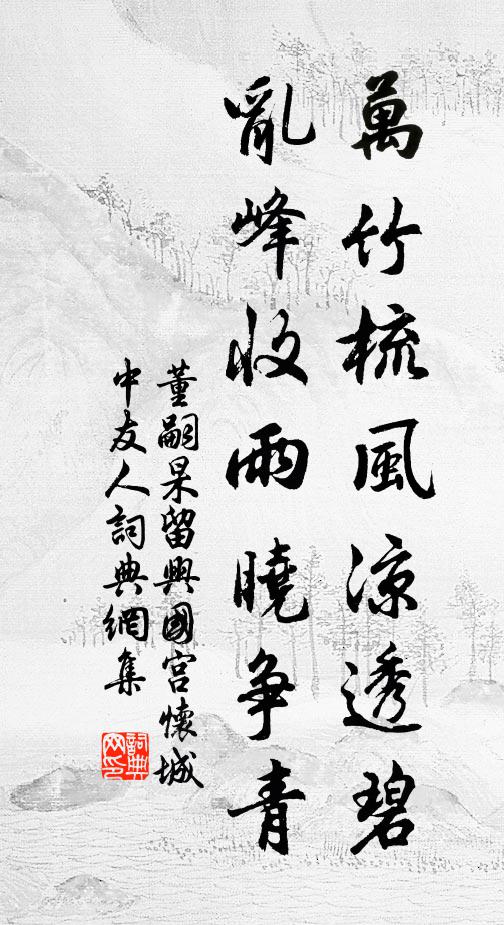 萬竹梳風凉透碧
亂峰收雨曉争青
董嗣杲留興國宫懷城
中友人詞典網集
詞典
網印